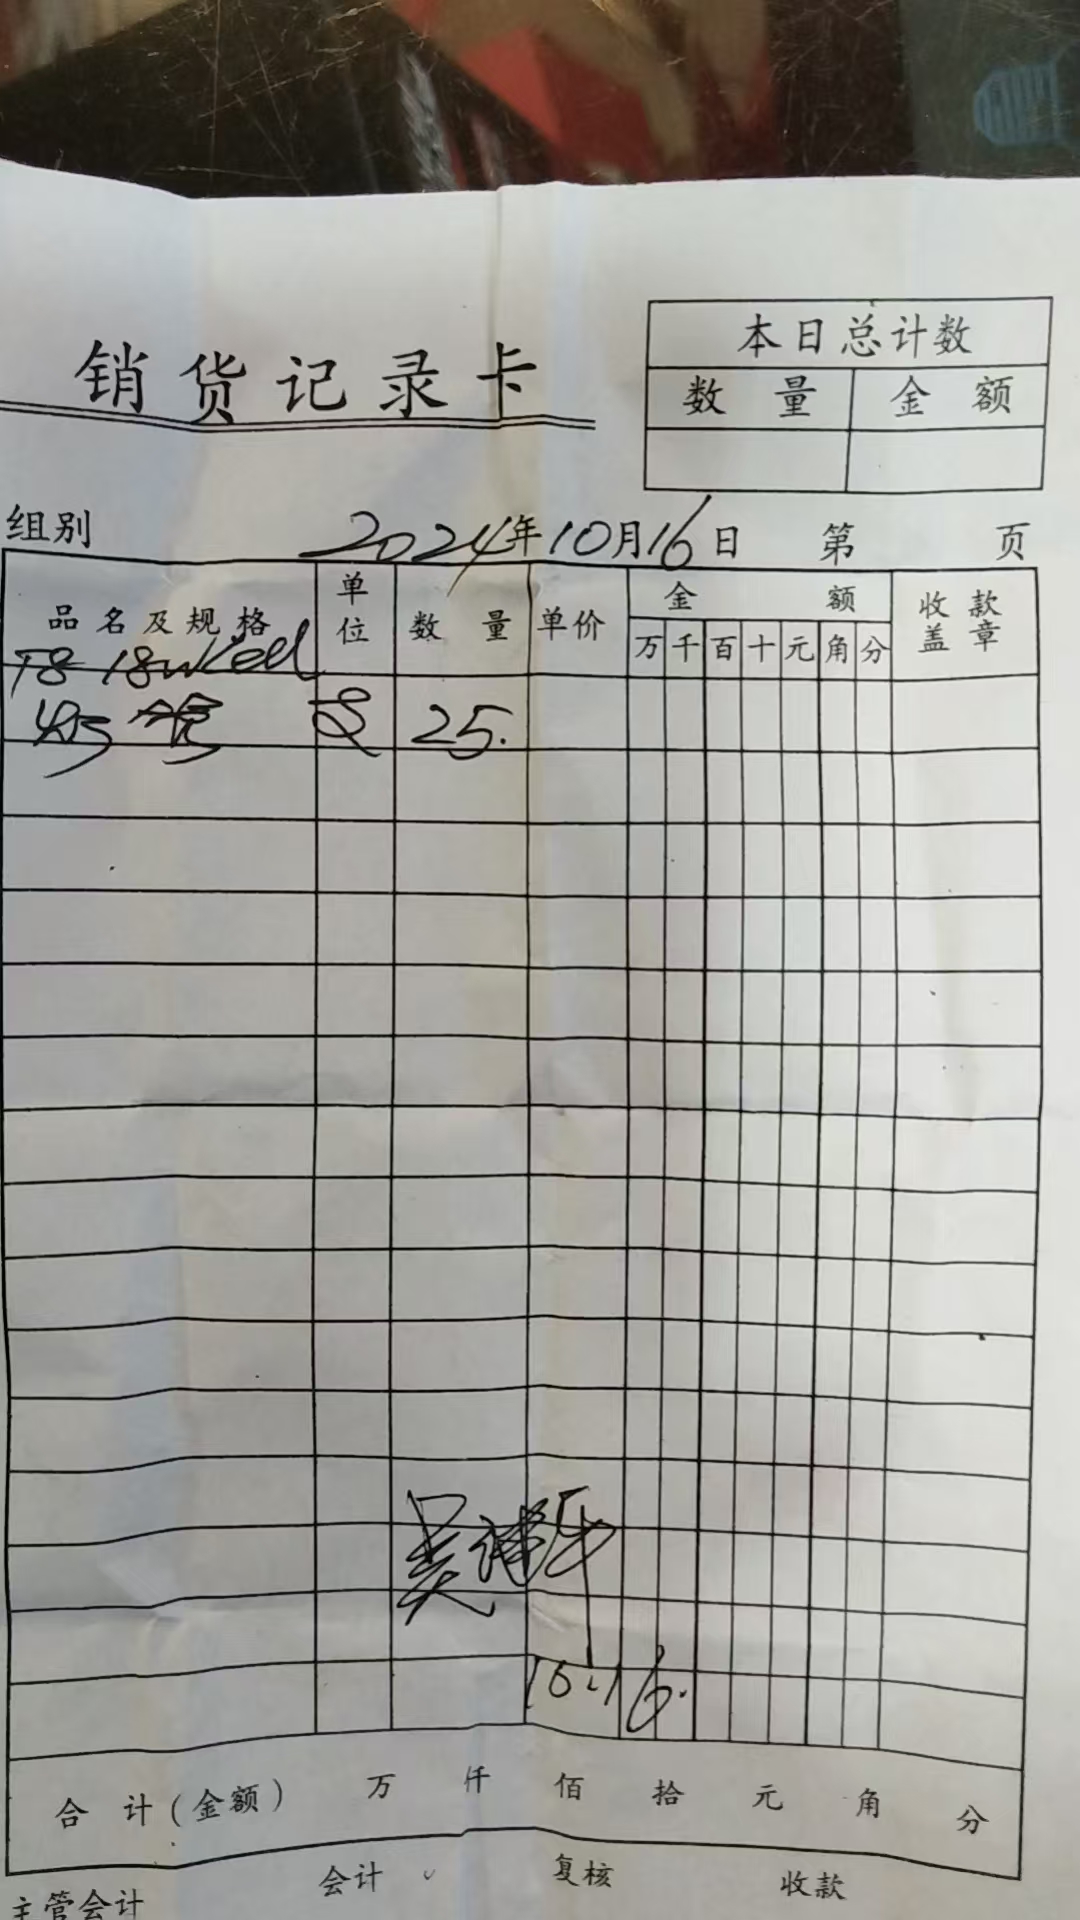 本日总计数
销货记录卡
数量 金额
组别 2024年10月16日 第 页
品名及规格 单位 数量 单价 金额 收款盖章
万 千 百 十 元 角 分
T8 18w led
灯管 支 25.
10.16.
合计(金额) 万 仟 佰 拾 元 角 分
主管会计 会计 复核 收款